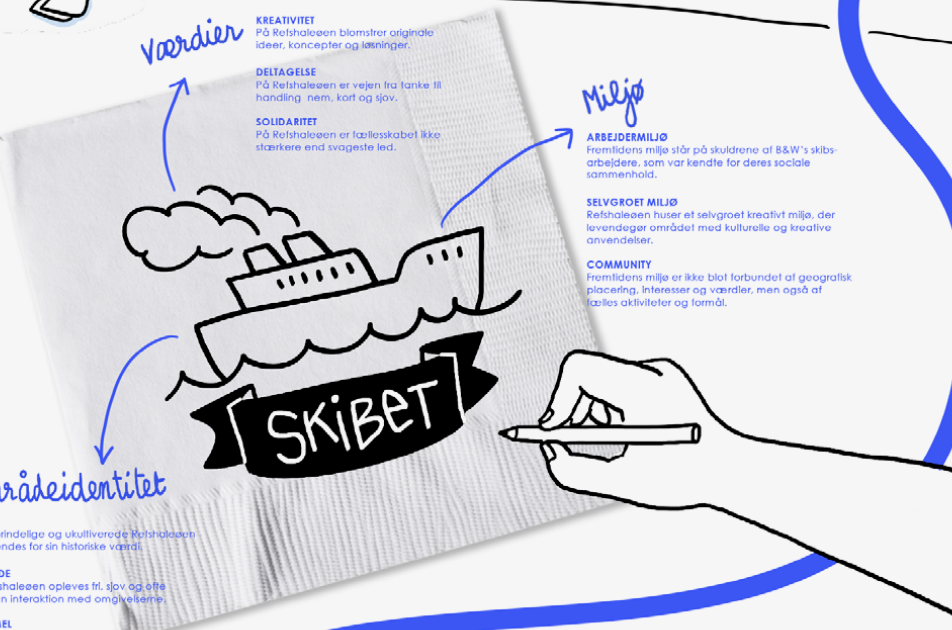 værdier
KREATIVITET
På Refshaleøen blomstrer originale
ideer, koncepter og løsninger.
DELTAGELSE
På Refshaleøen er vejen fra tanke til
handling nem, kort og sjov.
SOLIDARITET
På Refshaleøen er fællesskabet ikke
stærkere end svageste led.
Miljø
ARBEJDERMILJØ
Fremtidens miljø står på skuldrene af B&W's skibs-
arbejdere, som var kendte for deres sociale
sammenhold.
SELVGROET MILJØ
Refshaleøen huser et selvgroet kreativt miljø, der
levendegør området med kulturelle og kreative
anvendelser.
COMMUNITY
Fremtidens miljø er ikke blot forbundet af geografisk
placering, interesser og værdier, men også af
fælles aktiviteter og formål.
SKIBET
rådeidentitet
rindelige og ukultiverede Refshaleøen
endes for sin historiske værdi.
DE
shaleøen opleves fri, sjov og ofte
n interaktion med omgivelserne.
EL